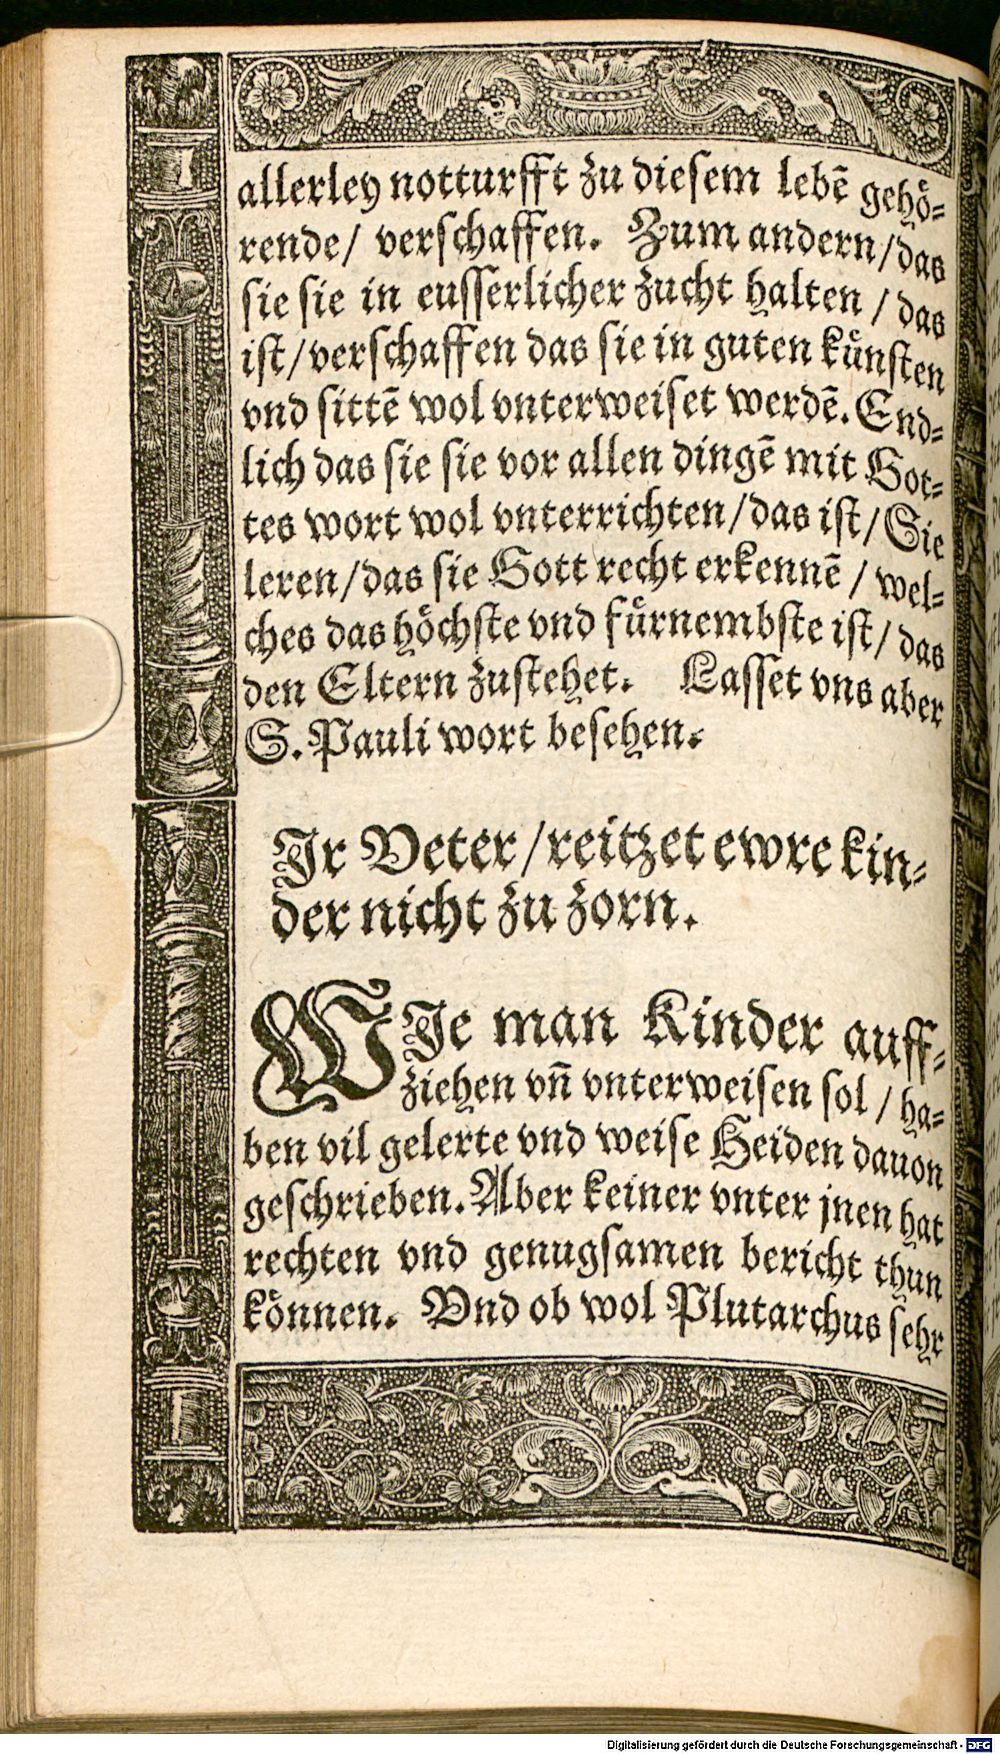 allerley notturfft zu diesem lebē gehoͤ-
rende/ verschaffen. Zum andern/das
sie sie in eusserlicher zucht halten / das
ist/verschaffen das sie in guten kuͤnsten
vnd sittē wol vnterweiset werdē. End-
lich das sie sie vor allen dingē mit Got-
tes wort wol vnterrichten/das ist/Sie
leren/das sie Gott recht erkennē / wel-
ches das hoͤchste vnd fuͤrnembste ist/ das
den Eltern zustehet. Lasset vns aber
S. Pauli wort besehen.
Jr Veter/reitzet ewre kin-
der nicht zu zorn.
WJe man Kinder auff-
ziehen vn̄ vnterweisen sol / ha-
ben vil gelerte vnd weise Heiden dauon
geschrieben. Aber keiner vnter jnen hat
rechten vnd genugsamen bericht thun
koͤnnen. Vnd ob wol Plutarchus sehr
Digitalisierung gefördert durch die Deutsche Forschungsgemeinschaft - DFG